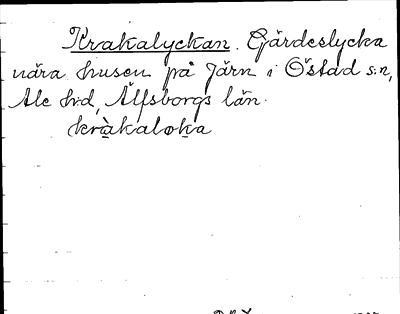 Krakalyckan. Gärdeslycka
nära husen på Järn i Östad s:n,
Ale hd, Älfsborgs län.
kràkaloka